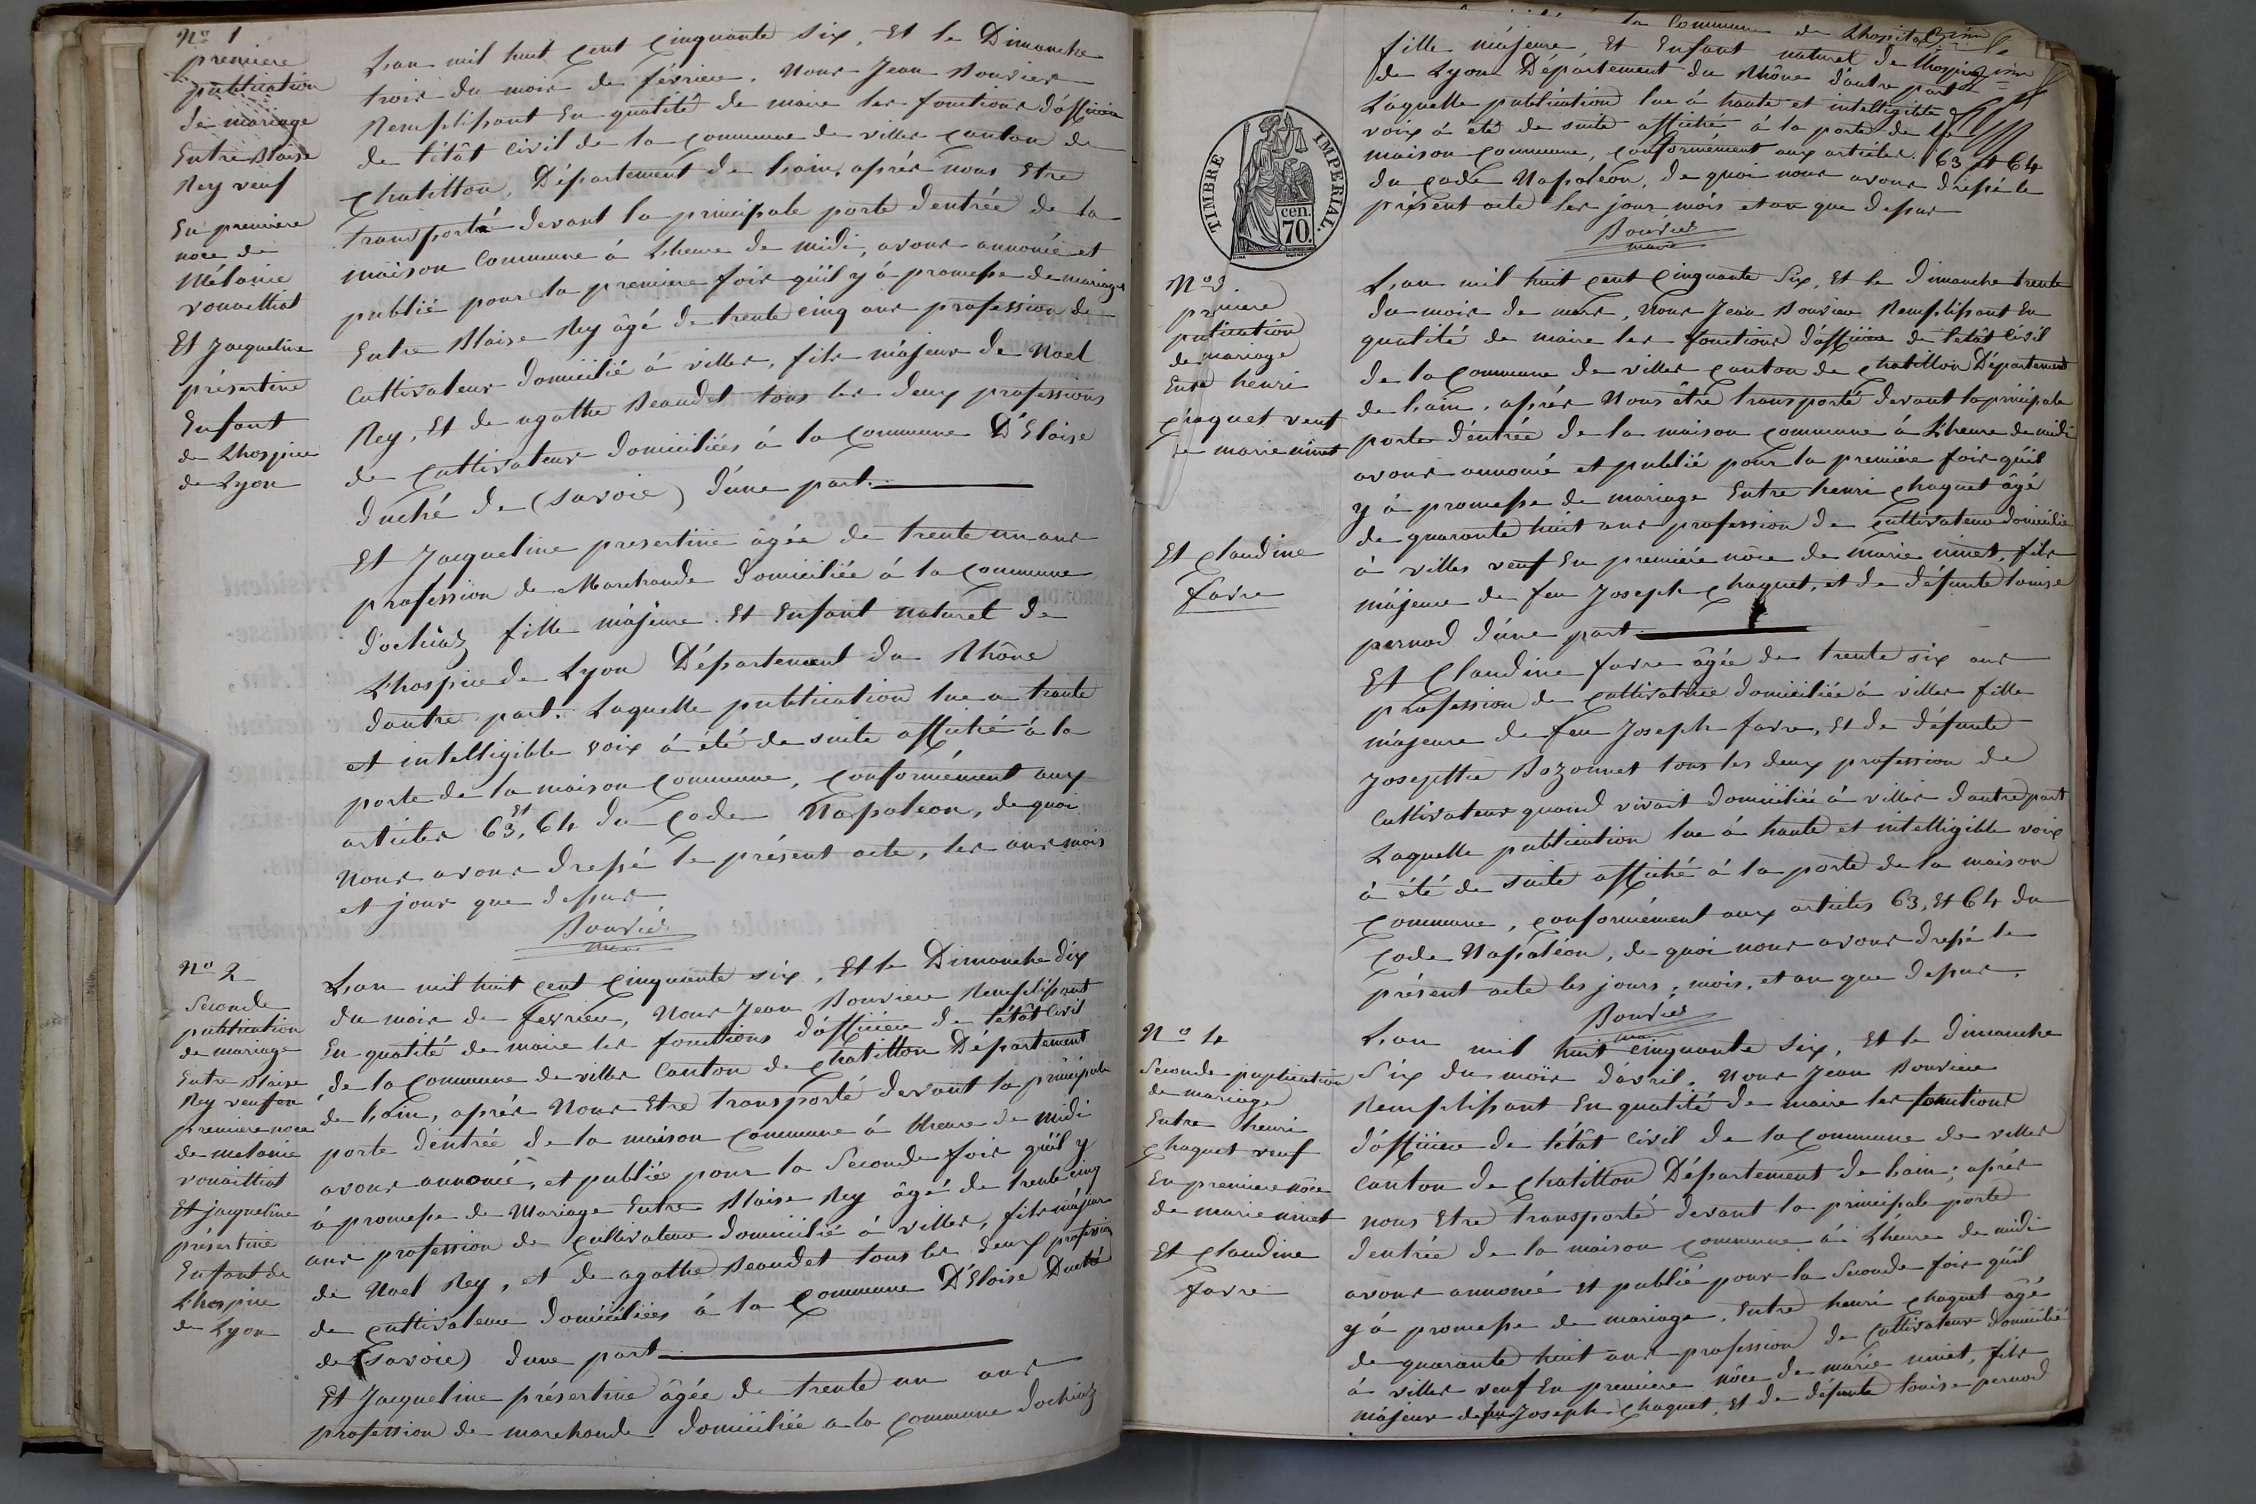 No 1
première
publication
de mariage
Entre Blaise
Rey veuf
En première
noce de
Mélanie
vouaillat
Et Jacqueline
présertine
Enfant
de Lhospice
de Lyon
Lan mil huit cent cinquante six, Et le Dimanche
trois du mois de février. Nous Jean Bouvier
Remplissant En qualité de maire les fonctions d'officier
de l'état civil de la commune de villes canton de
chatillon, Département de Lain, après nous Etre
transporté devant la principale porte d'entrée de la
maison commune à Lheure de midi, avons annoncé et
publié pour la première fois qu'il y á promesse de mariage
Entre Blaise Rey âgé de trente cinq ans profession de
Cultivateur domicilié à villes, fils májeur de Noel
Rey, Et de agathe Beaudet tous les deux professions
de cultivateur domiciliés à la commune D'Eloise
duché de (savoie) d'une part.
Et Jacqueline presertine âgée de trente un ans
profession de Marchande domiciliée à la commune
d'ochiaz fille májeure. Et Enfant naturel de
L'hospice de Lyon Département du Rhône
dautre part. Laquelle publication lue a haute
et intelligible voix á été de suite affiché à la
porte de la maison commune, conformément aux
articles 63, et 64 du code Napoléon, de quoi
Nous avons dressé le présent acte, les ans mois
et jour que dessus
Bouvier
maire
No 2
Seconde
publication
de mariage
Entre Blaise
Rey veuf en
première noce
de melanie
vouaillat
Et jacqueline
présertine
Enfant de
Lhospice
de Lyon
Lan mil huit cent cinquante six, Et le Dimanche dix
du mois de fevrier, Nous Jean Bouvier Remplissant
En qualité de maire les fonctions d'officier de l'état civil
de la commune de villes Canton de chatillon Département
de Lain, après Nous Etre transporté devant la principale
porte d'entrée de la maison commune á Lheure de midi
avons annoncé, et publié pour la Seconde fois qu'il y
á promesse de Mariage Entre Blaise Rey âgé de trente cinq
ans profession de cultivateur domicilié à villes, fils májeur
de Noel Rey, et de agathe Beaudet tous les deux profession
de cultivateur domiciliés à la commune D'Eloise Duché
de (savoie) dune part
Et Jacqueline présertine âgée de trente un ans
profession de marchande domiciliée a la commune dochiaz
la Commune de Lhospital
fille májeure, Et Enfant naturel de Lhospice
de Lyon Département du Rhône d'autre part
Láquelle publication lue á haute et intelligible
voix á été de suite affiché á la porte de la
maison commune, conformément aux articles. 63 et 64
du code Napoléon, de quoi nous avons dressé le
présent acte les jour mois et an que dessus
Bouvier
maire
TIMBRE IMPERIAL.
cen.
70.
No 3
première
publication
de mariage
Entre henri
chaquet veuf
de marie ninet
Et claudine
favre
Lan mil huit cent cinquante Six, Et le Dimanche trente
du mois de mars, Nous Jean Bouvier Remplissant En
qualité de maire les fonctions d'officier de l'etât civil
de la commune de villes canton de chatillon Département
de Lain, après Nous être transporté devant la principale
porte d'entrée de la maison commune á L'heure de midi
avons annoncé et publié pour la première fois qu'il
y á promesse de mariage Entre henri chaquet âgé
de quarante huit ans profession de cultivateur domicilié
à villes veuf En première nôce de Marie ninet, fils
májeur de feu Joseph chaquet, et de défunte Louise
pernod d'une part.
Et Claudine favre âgée de trente six ans
profession de cultivatrice domiciliée à villes fille
májeure de feu Joseph favre, Et de défunte
Josephtte Bozonnet tous les deux profession de
Cultivateur quand vivait domicilié á villes dautre part
Laquelle publication lue á haute et intelligible voix
à été de suite affiché á la porte de la maison
commune, conformément aux articles 63, Et 64 du
Code Napoléon, de quoi nous avons dressé le
présent acte les jours, mois, et an que dessus.
Bouvier
maire
No 4
Seconde puplication
de mariage
Entre henri
chaquet veuf
En première nôce
de marie ninet
Et claudine
favre
Lan mil huit cinquante Six, Et le dimanche
Six du moir d'avril. Nous Jean Bouvier
Remplissant En qualité de maire les fonctions
d'officier de l'étât civil de la commune de villes
canton de chatillon Département de Lain; après
nous Etre transporté devant la principale porte
dentrée de la maison commune á L'heure de midi
avons annoncé et publié pour la Seconde fois qu'il
y á promesse de mariage, Entre henri chaquet âgé
de quarante huit ans profession de cultivateur domicilié
à villes veuf En première nôce de marie ninet, fils
májeur de feu Joseph chaquet, Et de défunte Louise pernod